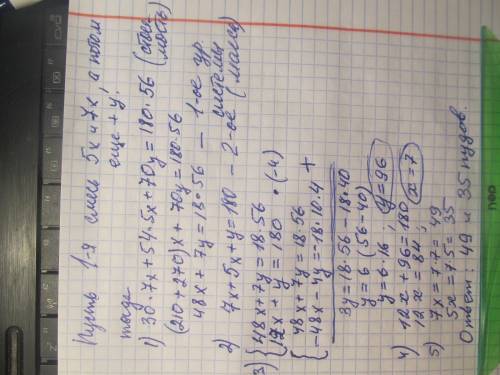 Пусть 1-я смесь 5х и 7х, а потом
еще + у.
тогда
1) 30·7х + 54·5х + 70у = 180·56 (стоимость)
(210+270)х + 70у = 180·56
48х + 7у = 18·56 — 1-ое ур.
системы
2) 7х + 5х + у = 180 — 2-ое (масса)
3) { 48х + 7у = 18·56
12х + у = 180 · (-4)
{ 48х + 7у = 18·56
-48х - 4у = -18·10·4 +
3у = 18·56 - 18·40
у = 6 (56-40)
у = 6·16, у = 96
4) 12х + 96 = 180
12х = 84, х = 7
5) 7х = 7·7 = 49
5х = 7·5 = 35
Ответ: 49 и 35 пудов.